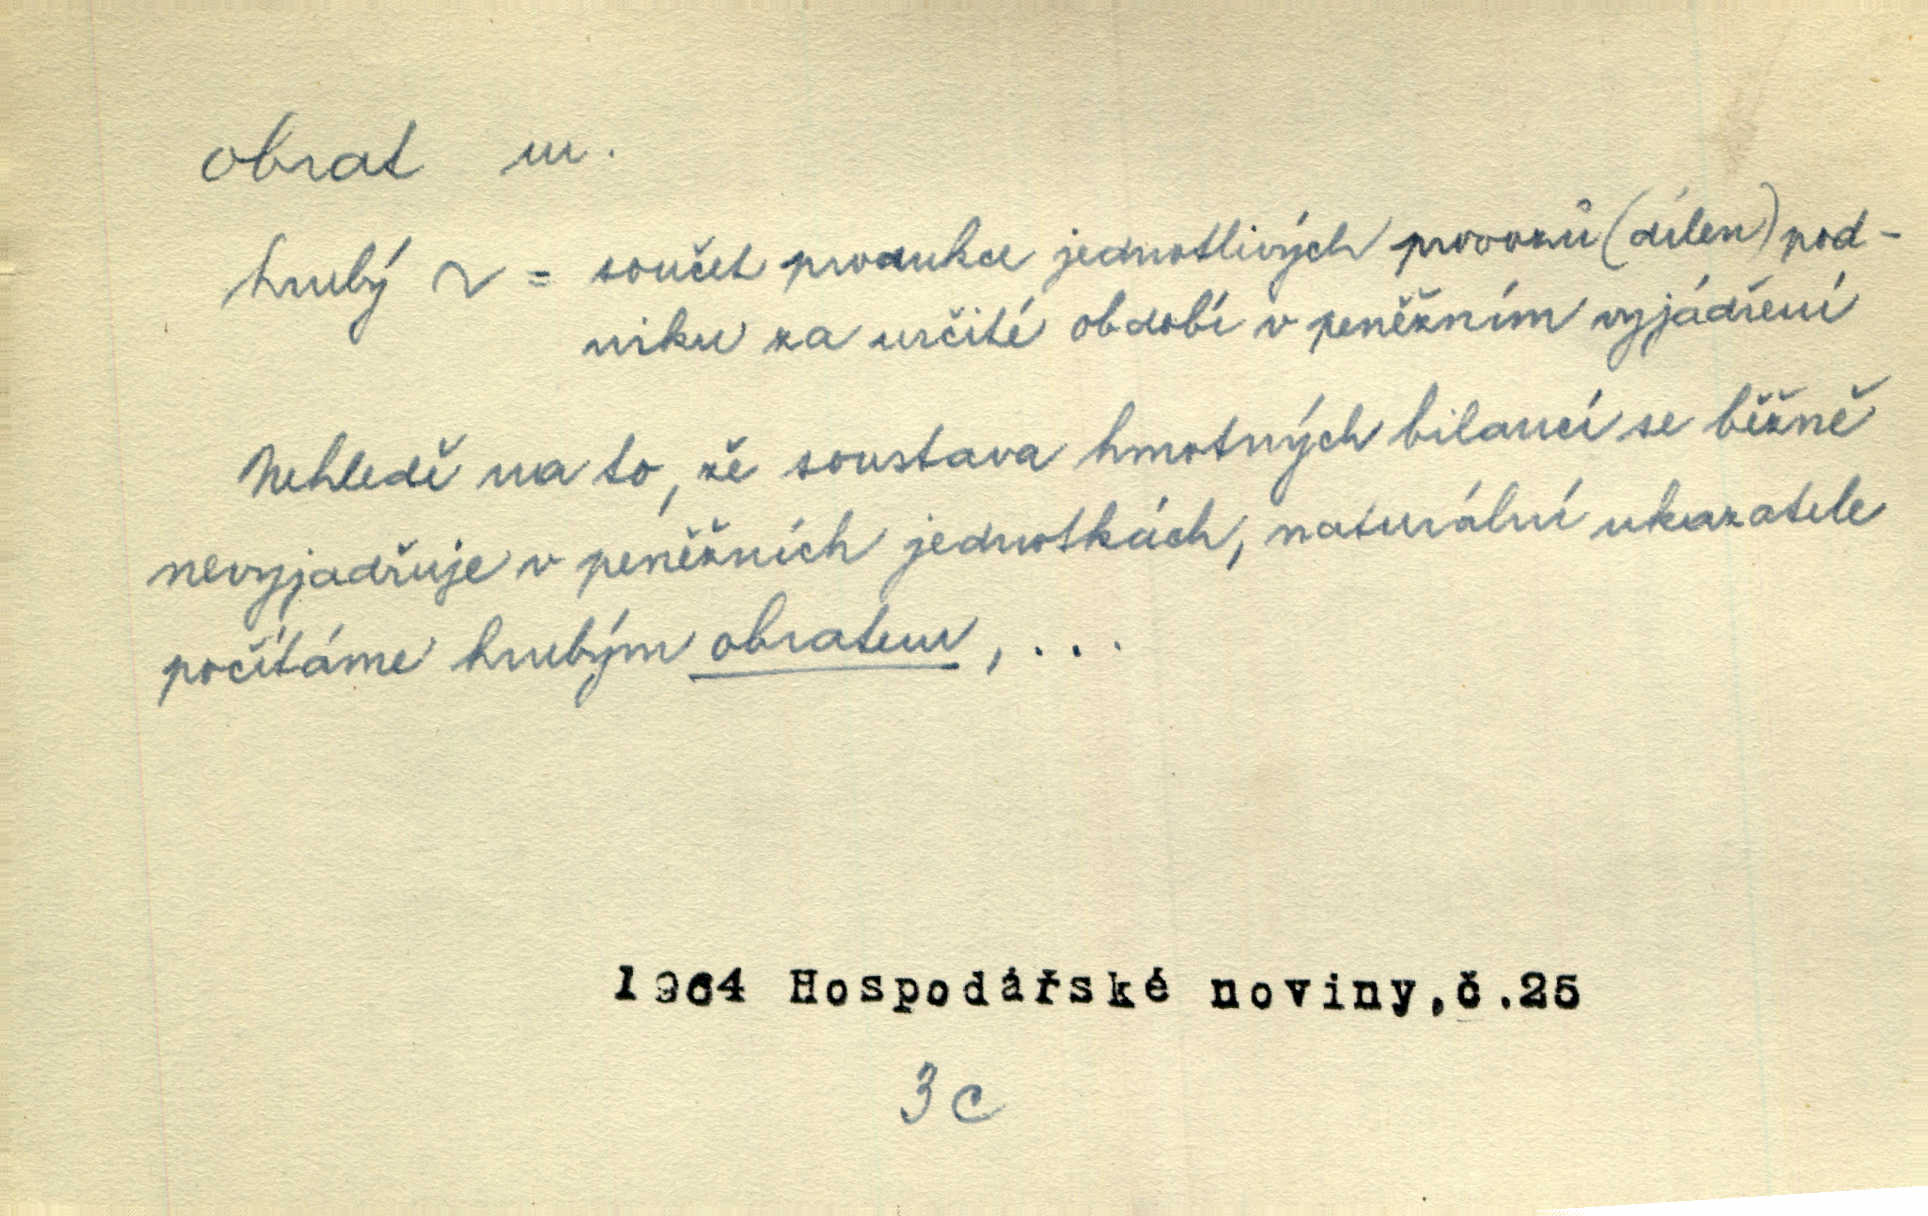 obrat m.
hrubý ~ = součet produkce jednotlivých provozů (dílen) pod-
niku za určité období v peněžním vyjádření
Nehledě na to, že soustava hmotných bilancí se běžně
nevyjadřuje v peněžních jednotkách, naturální ukazatele
počítáme hrubým obratem, ...
1964 Hospodářské noviny,č.25
3c